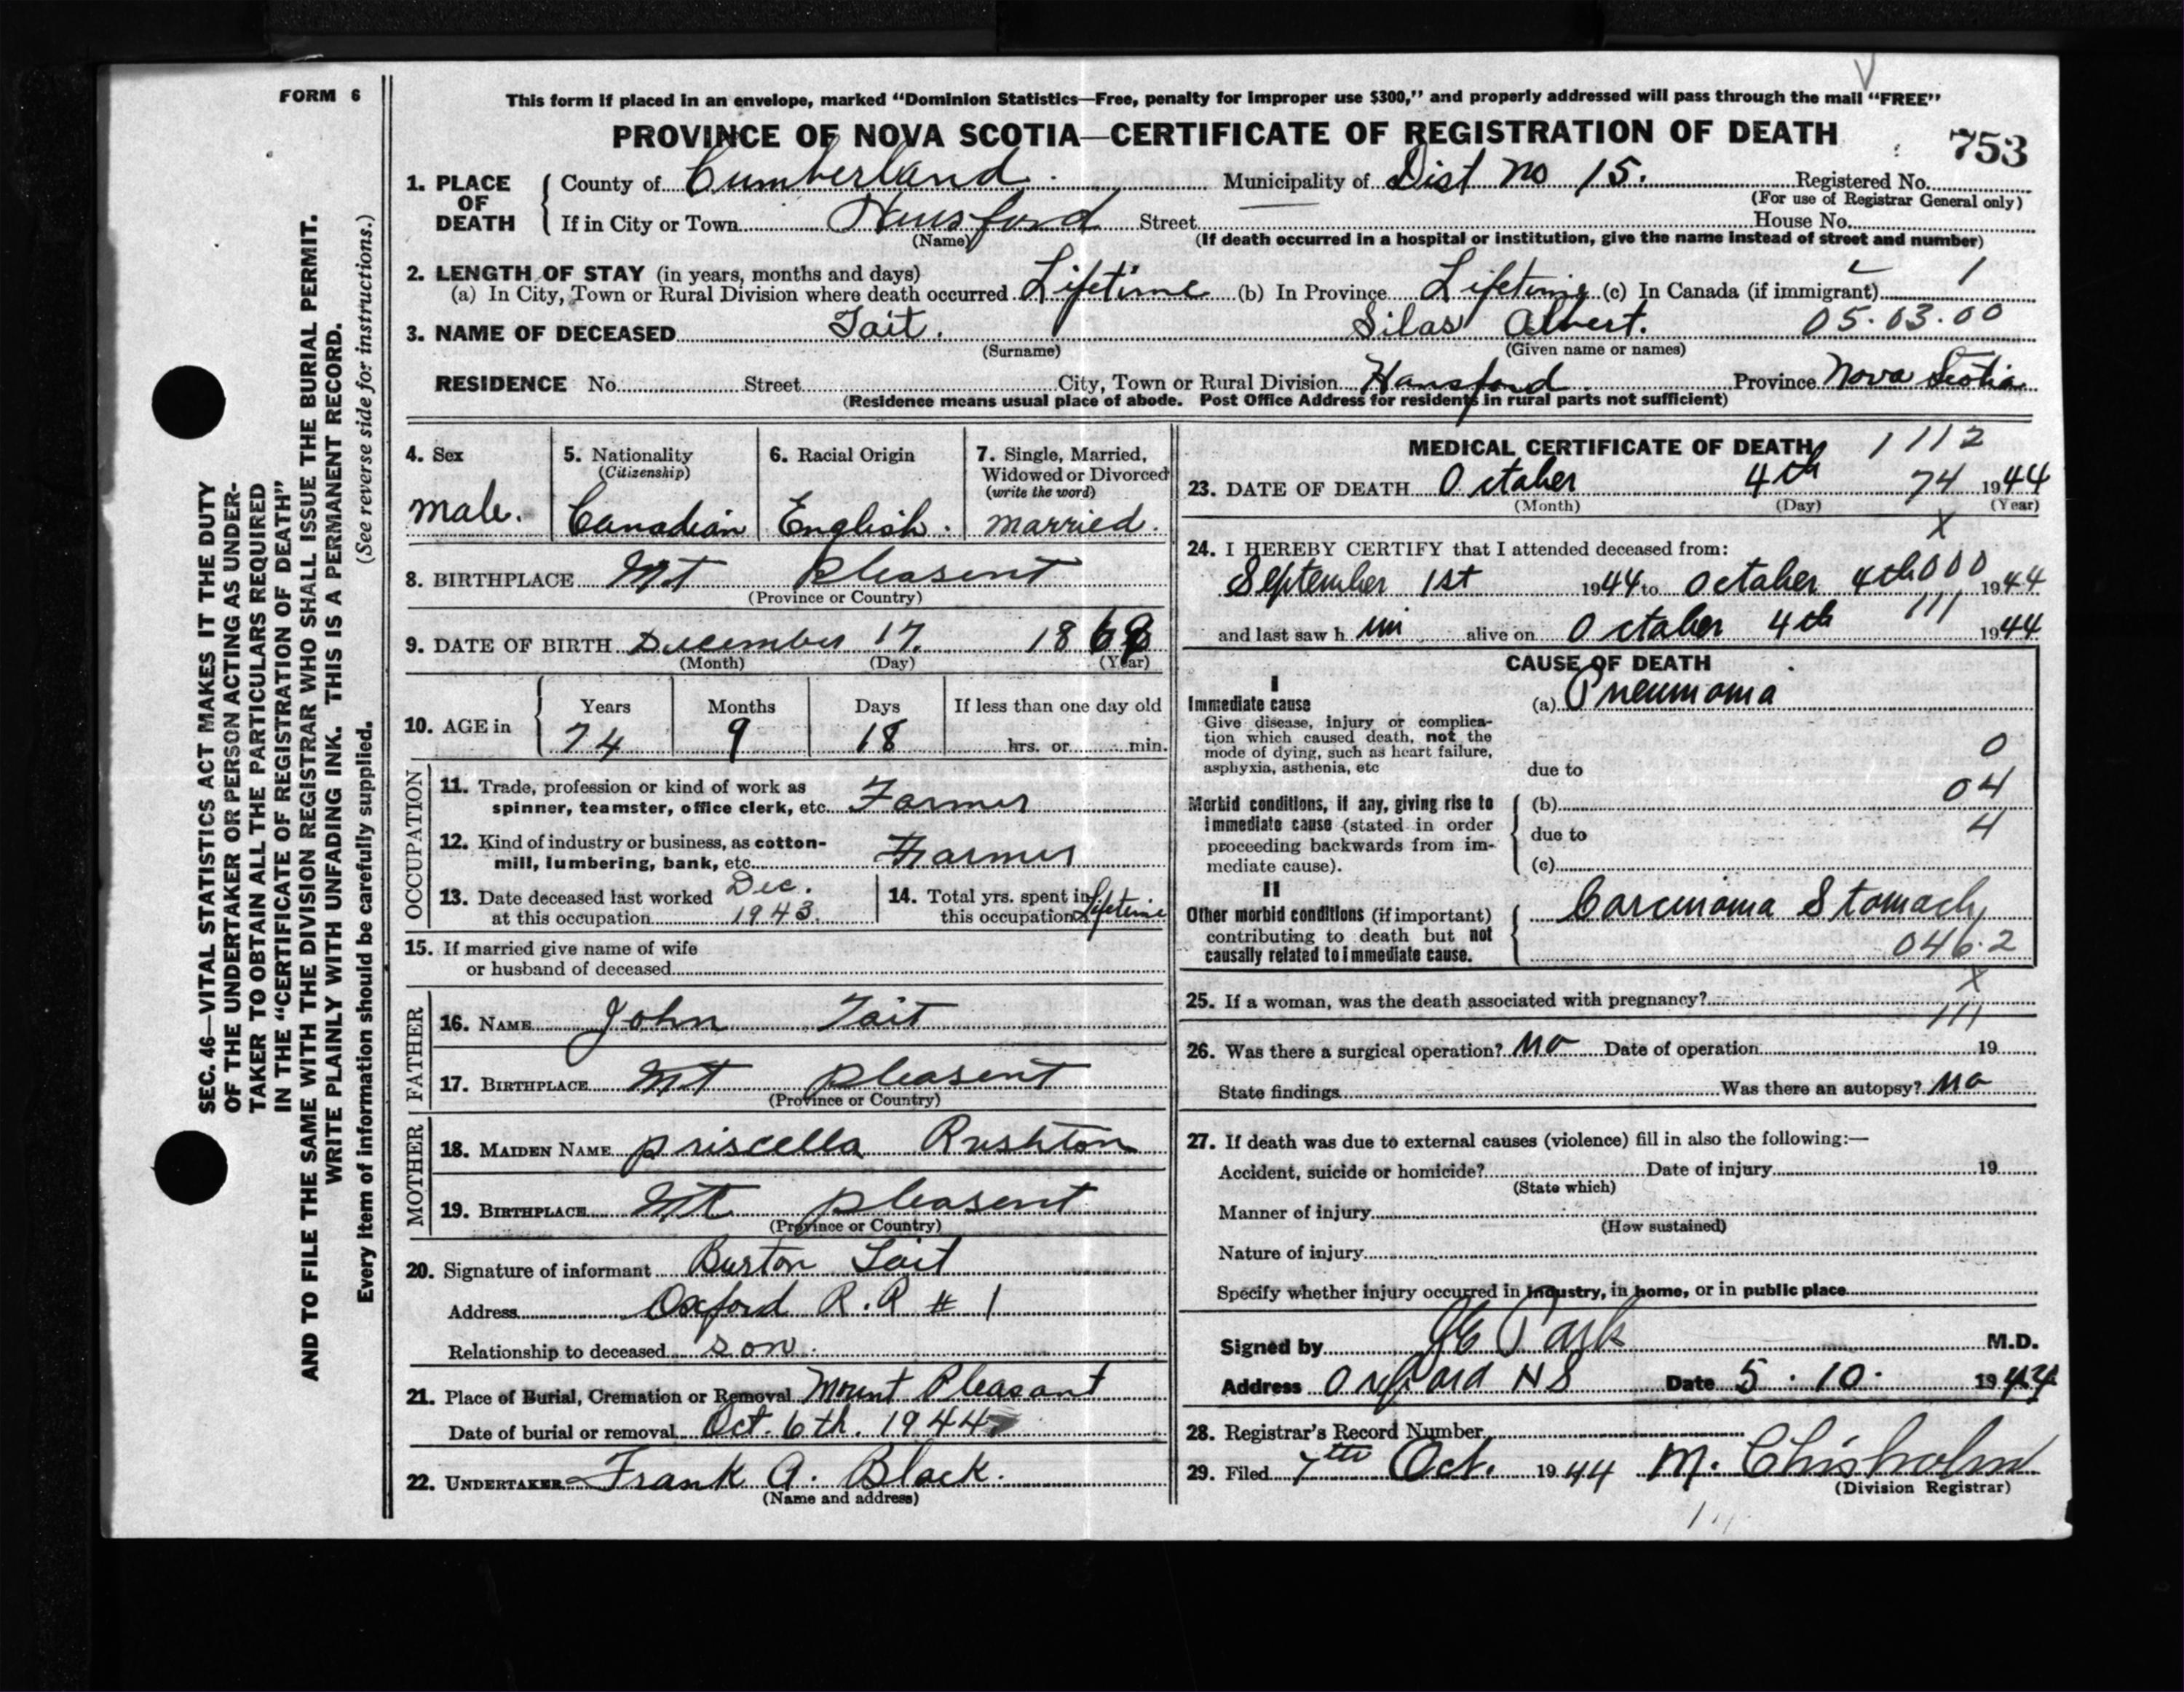 FORM 6
This form if placed in an envelope, marked “Dominion Statistics—Free, penalty for improper use $300,” and properly addressed will pass through the mail “FREE”
PROVINCE OF NOVA SCOTIA—CERTIFICATE OF REGISTRATION OF DEATH
753
1. PLACE OF DEATH
County of Cumberland Municipality of Dist no 15. Registered No.
(For use of Registrar General only)
If in City or Town Hansford Street House No.
(Name) (If death occurred in a hospital or institution, give the name instead of street and number)
2. LENGTH OF STAY (in years, months and days)
(a) In City, Town or Rural Division where death occurred Lifetime (b) In Province Lifetime (c) In Canada (if immigrant) 1
3. NAME OF DECEASED Tait. Silas Albert. 05.03.00
(Surname) (Given name or names)
RESIDENCE No. Street City, Town or Rural Division Hansford Province Nova Scotia
(Residence means usual place of abode. Post Office Address for residents in rural parts not sufficient)
4. Sex
male.
5. Nationality
(Citizenship)
Canadian
6. Racial Origin
English.
7. Single, Married,
Widowed or Divorced
(write the word)
married.
8. BIRTHPLACE Mt pleasent
(Province or Country)
9. DATE OF BIRTH December 17. 1869
(Month) (Day) (Year)
10. AGE in
Years Months Days If less than one day old
74 9 18 hrs. or min.
OCCUPATION
11. Trade, profession or kind of work as
spinner, teamster, office clerk, etc. Farmer
12. Kind of industry or business, as cotton-
mill, lumbering, bank, etc. Farmer
13. Date deceased last worked Dec.
at this occupation 1943.
14. Total yrs. spent in
this occupation Lifetime
15. If married give name of wife
or husband of deceased
FATHER
16. NAME John Tait
17. BIRTHPLACE Mt pleasent
(Province or Country)
MOTHER
18. MAIDEN NAME priscella Rushton
19. BIRTHPLACE Mt pleasent
(Province or Country)
20. Signature of informant Burton Tait
Address Oxford R.R # 1
Relationship to deceased son.
21. Place of Burial, Cremation or Removal Mount Pleasant
Date of burial or removal Oct. 6th. 1944
22. UNDERTAKER Frank A. Black.
(Name and address)
MEDICAL CERTIFICATE OF DEATH 1112
23. DATE OF DEATH October 4th 74 1944
(Month) (Day) (Year)
X
24. I HEREBY CERTIFY that I attended deceased from:
September 1st 1944 to October 4th 000 1944
111
and last saw h im alive on October 4th 1944
CAUSE OF DEATH
I
Immediate cause
Give disease, injury or complica-
tion which caused death, not the
mode of dying, such as heart failure,
asphyxia, asthenia, etc
(a) Pneumonia
0
due to
Morbid conditions, if any, giving rise to
immediate cause (stated in order
proceeding backwards from im-
mediate cause).
(b) 04
due to 4
(c)
II
Other morbid conditions (if important)
contributing to death but not
causally related to immediate cause.
Carcinoma Stomach
046.2
X
25. If a woman, was the death associated with pregnancy?
111
26. Was there a surgical operation? no Date of operation 19
State findings Was there an autopsy? no
27. If death was due to external causes (violence) fill in also the following:—
Accident, suicide or homicide? Date of injury 19
(State which)
Manner of injury
(How sustained)
Nature of injury
Specify whether injury occurred in industry, in home, or in public place
Signed by Park M.D.
Address Oxford NS Date 5.10. 1944
28. Registrar's Record Number
29. Filed 7th Oct. 1944 M. Chisholm
(Division Registrar)
SEC. 46—VITAL STATISTICS ACT MAKES IT THE DUTY
OF THE UNDERTAKER OR PERSON ACTING AS UNDER-
TAKER TO OBTAIN ALL THE PARTICULARS REQUIRED
IN THE “CERTIFICATE OF REGISTRATION OF DEATH”
AND TO FILE THE SAME WITH THE DIVISION REGISTRAR WHO SHALL ISSUE THE BURIAL PERMIT.
WRITE PLAINLY WITH UNFADING INK. THIS IS A PERMANENT RECORD.
Every item of information should be carefully supplied. (See reverse side for instructions.)